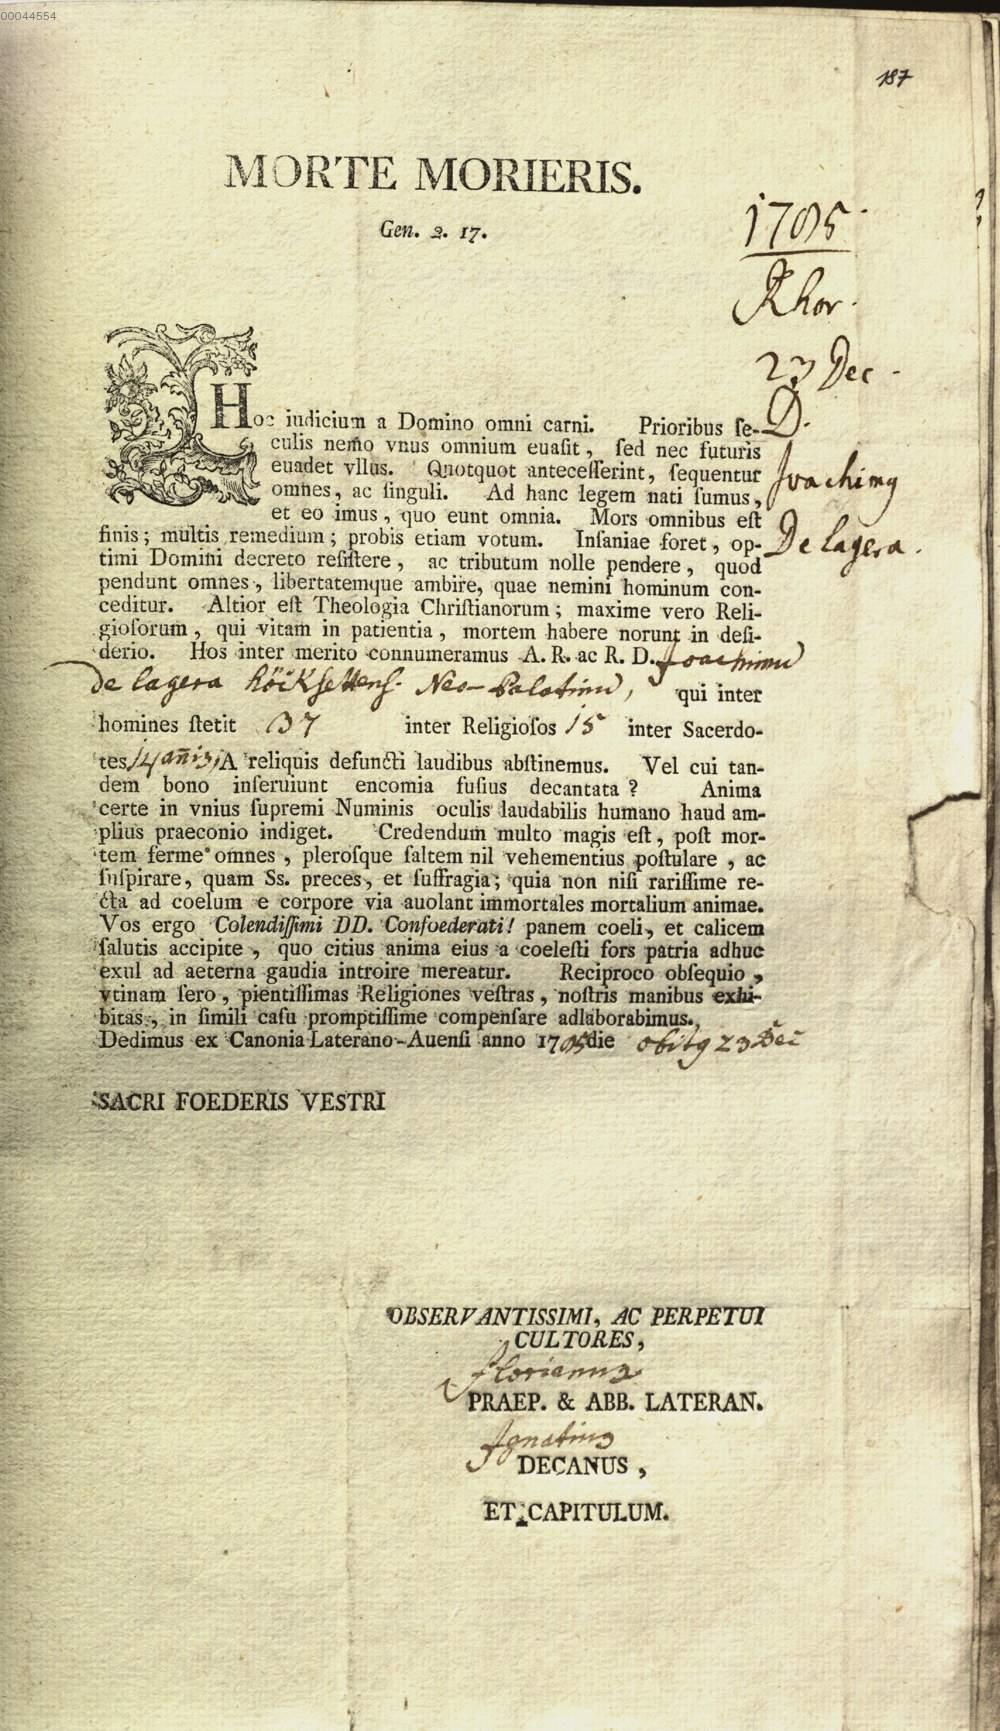 00044554
187
MORTE MORIERIS.
Gen. 2. 17.
1785.
Rhor.
23 Dec.
D.
Joachimq
De lagera.
Hoc iudicium a Domino omni carni. Prioribus ſe-
culis nemo vnus omnium euaſit, ſed nec futuris
euadet vllus. Quotquot anteceſſerint, ſequentur
omnes, ac ſinguli. Ad hanc legem nati ſumus,
et eo imus, quo eunt omnia. Mors omnibus eſt
finis; multis remedium; probis etiam votum. Inſaniae foret, op-
timi Domini decreto reſiſtere, ac tributum nolle pendere, quod
pendunt omnes, libertatemque ambire, quae nemini hominum con-
ceditur. Altior eſt Theologia Chriſtianorum; maxime vero Reli-
gioſorum, qui vitam in patientia, mortem habere norunt in deſi-
derio. Hos inter merito connumeramus A. R. ac R. D. Joachimũ
De lagera Neo-Palatinũ, qui inter
homines ſtetit 37 inter Religioſos 15 inter Sacerdo-
tes 14 añis, A reliquis defuncti laudibus abſtinemus. Vel cui tan-
dem bono inſeruiunt encomia fuſius decantata? Anima
certe in vnius ſupremi Numinis oculis laudabilis humano haud am-
plius praeconio indiget. Credendum multo magis eſt, poſt mor-
tem ferme omnes, pleroſque ſaltem nil vehementius poſtulare, ac
ſuſpirare, quam Ss. preces, et ſuffragia; quia non niſi rariſſime re-
cta ad coelum e corpore via auolant immortales mortalium animae.
Vos ergo Colendiſſimi DD. Confoederati! panem coeli, et calicem
ſalutis accipite, quo citius anima eius a coeleſti fors patria adhuc
exul ad aeterna gaudia introire mereatur. Reciproco obſequio,
vtinam ſero, pientiſſimas Religiones veſtras, noſtris manibus exhi-
bitas, in ſimili caſu promptiſſime compenſare adlaborabimus.
Dedimus ex Canonia Laterano-Auenſi anno 1785 die obitq 23 Dec
SACRI FOEDERIS VESTRI
OBSERVANTISSIMI, AC PERPETUI
CULTORES,
Florianus
PRAEP. & ABB. LATERAN.
Ignatius
DECANUS,
ET CAPITULUM.